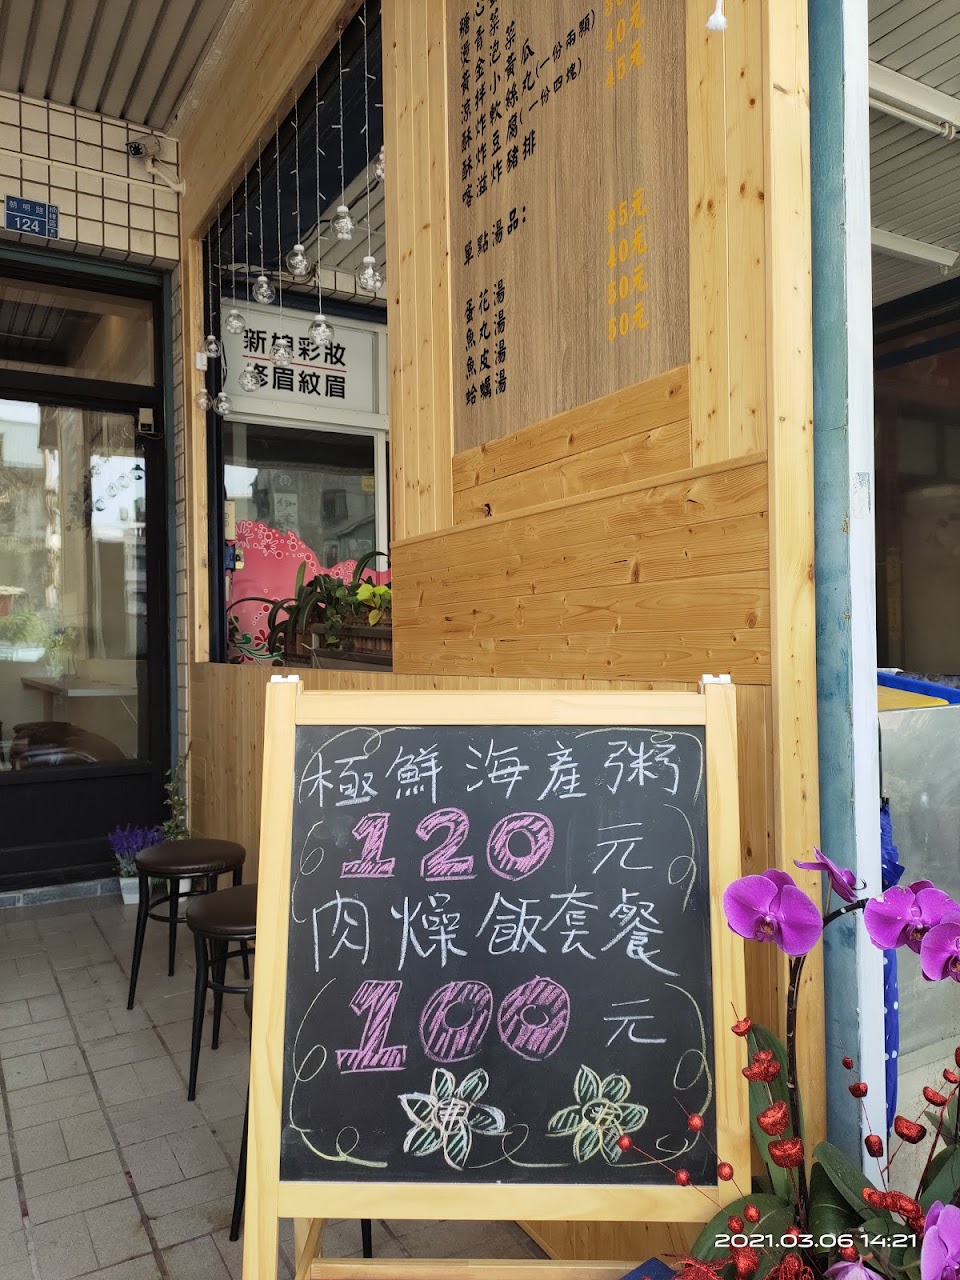 糖心
燙青菜
黃金泡菜
涼拌小黃瓜
酥炸軟絲丸(一份兩顆)
酥炸豆腐(一份四塊)
喀滋炸豬排
40元
45元
單點湯品:
蛋花湯 35元
魚丸湯 40元
魚皮湯 50元
蛤蠣湯 50元
朝明路
124
新娘彩妝
修眉紋眉
極鮮海產粥
120元
肉燥飯套餐
100元
2021.03.06 14:21